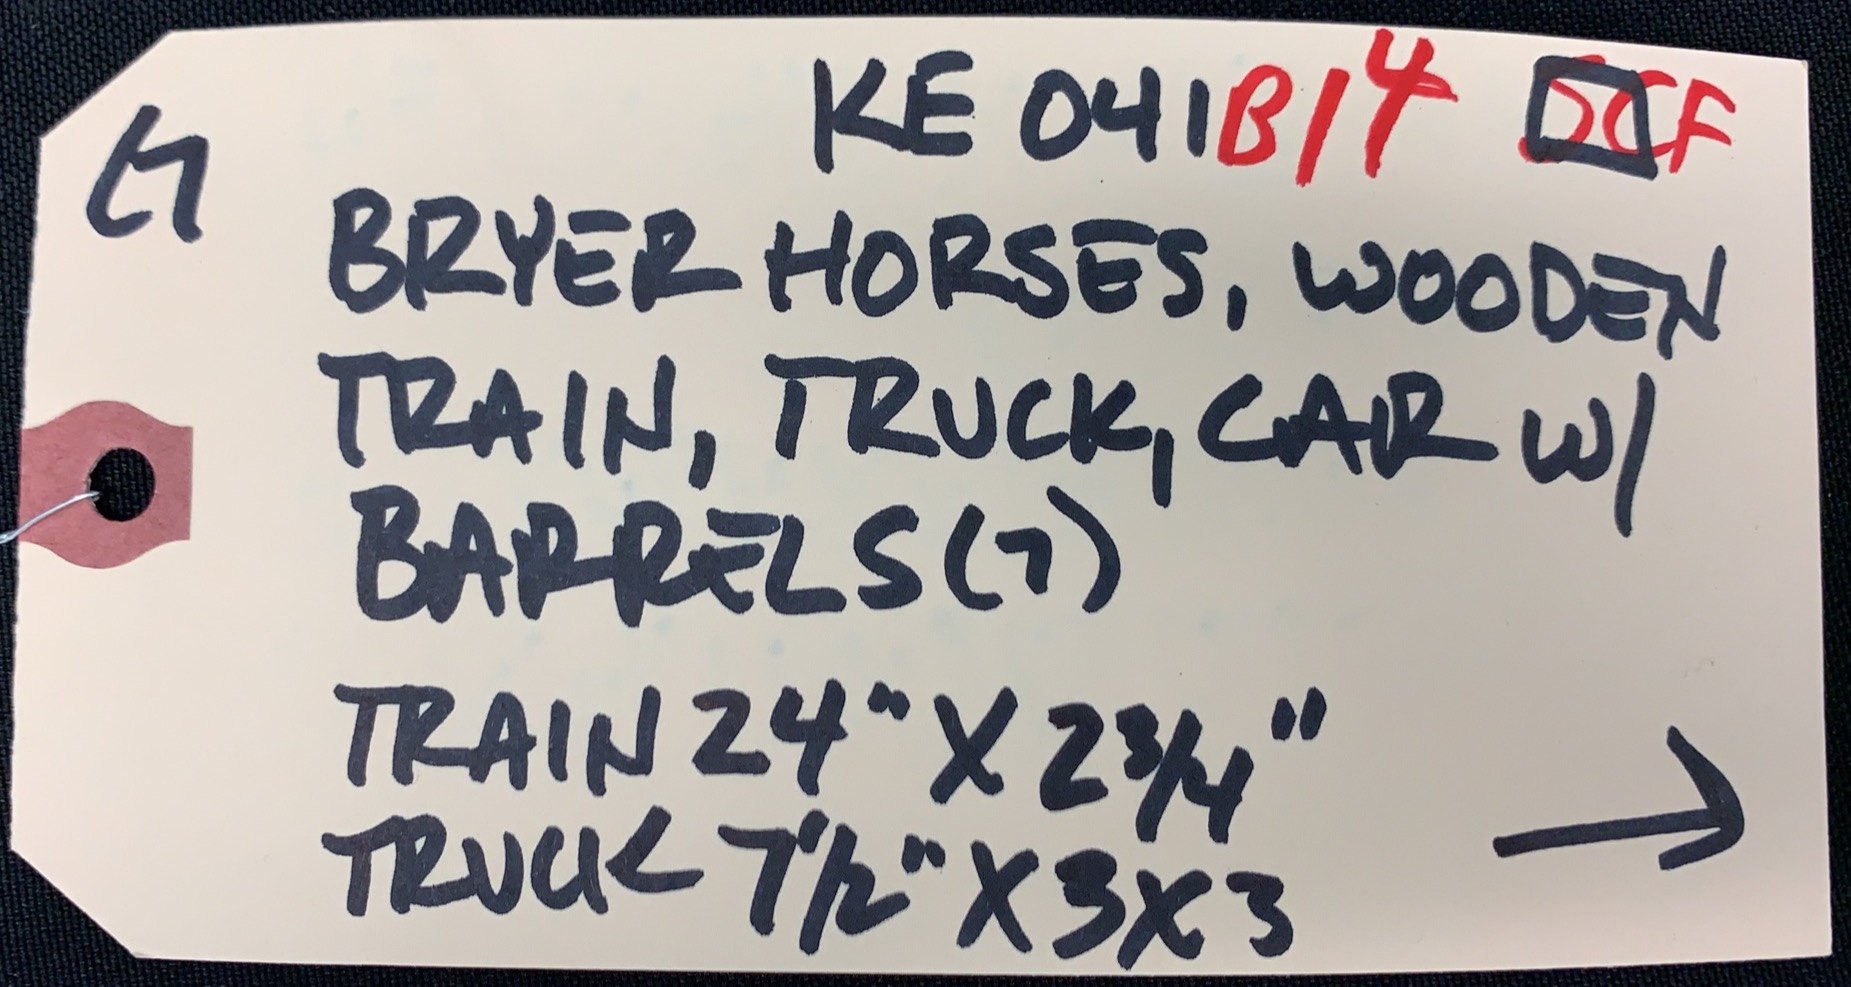 KE 041 B/4 SCF
BRYER HORSES, WOODEN
TRAIN, TRUCK, CAR W/
BARRELS (7)
TRAIN 24" X 2 3/4"
TRUCK 7 1/2" X 3 X 3